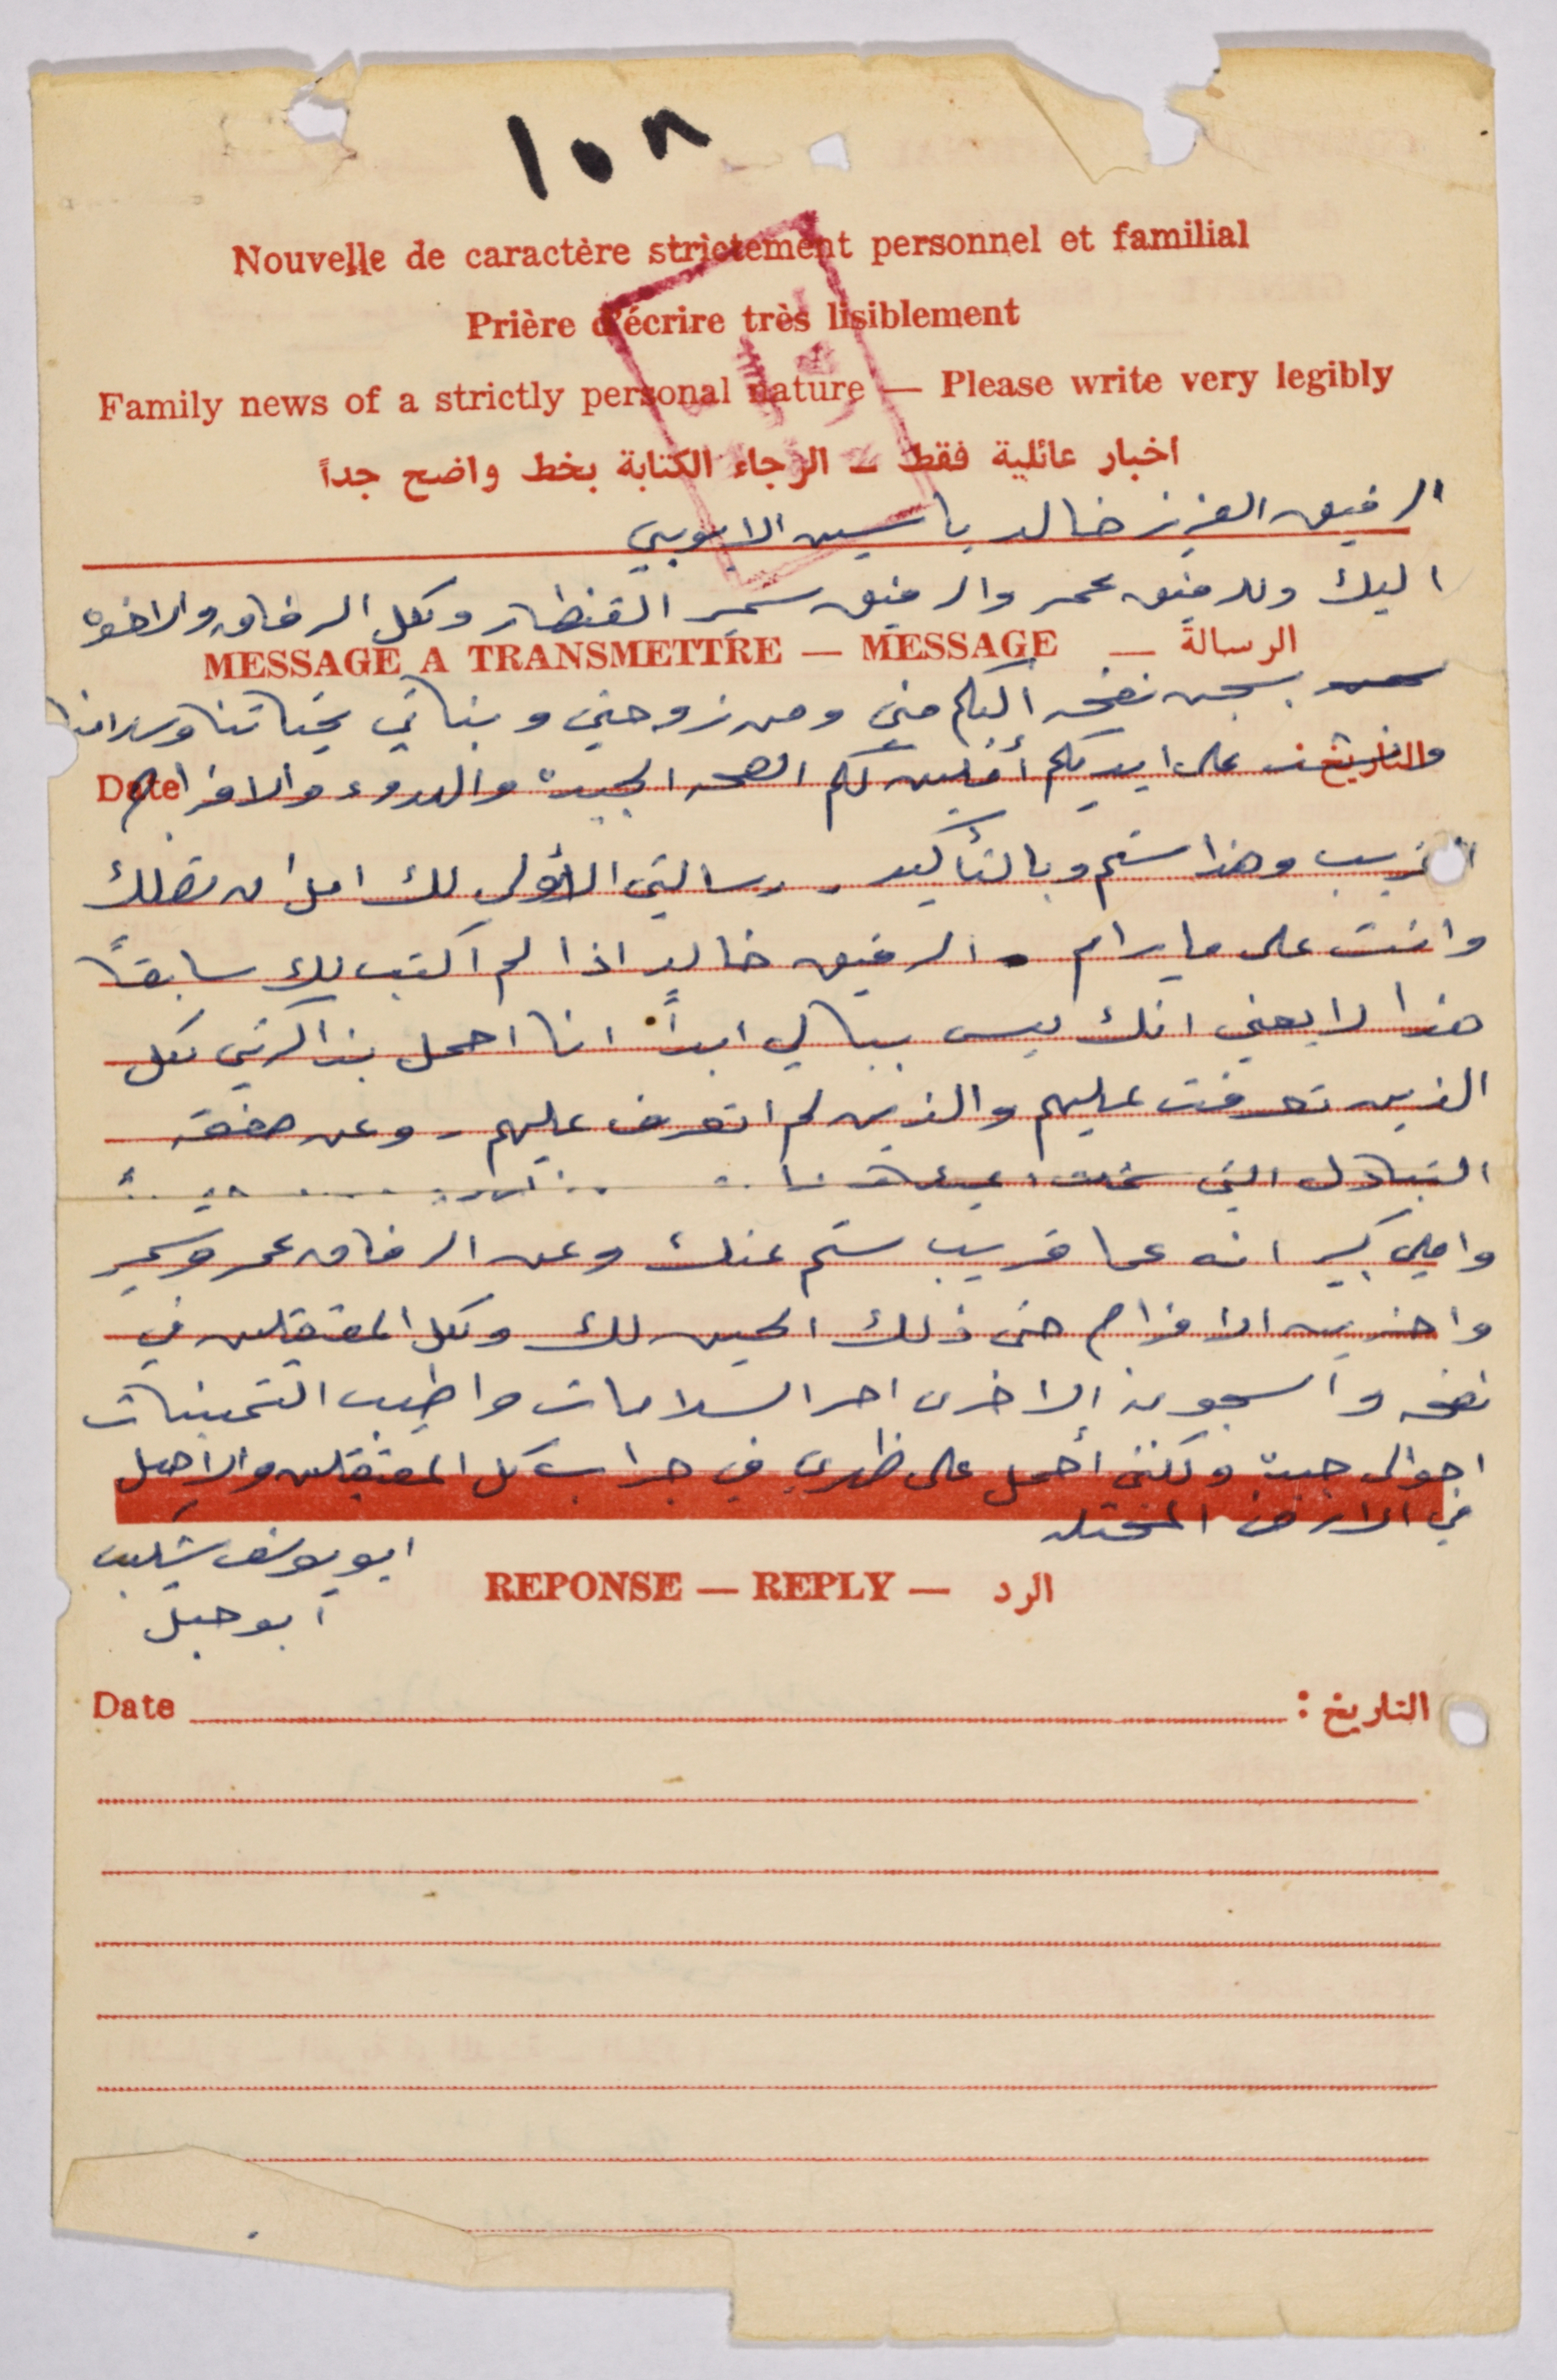 ١٥٨
Nouvelle de caractère strictement personnel et familial
Prière d'écrire très lisiblement
Family news of a strictly personal nature — Please write very legibly
اخبار عائلية فقط — الرجاء الكتابة بخط واضح جداً
الرفيق العزيز خالد ياسين الايوبي
اليك وللرفيق عمر والرفيق سمير القنطار ولكل الرفاق والاخوة
MESSAGE A TRANSMETTRE — MESSAGE — الرسالة
بسجن نفحه اليكم مني ومن زوجتي وبناتي تحياتنا وسلامنا
التاريخ Date
على ايديكم لكم الصحه الجيدة والهدوء والافراج
القريب وهذا سيتم وبالتأكيد - رسالتي الأولى لك امل ان تصلك
وانت على ما يرام . الرفيق خالد اذا لم اكتب لك سابقاً
هذا لا يعني انك ليس ببالي ابداً انا احمل بذاكرتي كل
الذين تعرفت عليهم والذين لم اتعرف عليهم - وعن صفقة
التبادل التي
واملي كبير انه عما قريب سيتم عنك وعن الرفاق عمر وسمير
واخرين الافراج حتى ذلك الحين لك ولكل المعتقلين في
نفحه والسجون الاخرى احر السلامات واطيب التمنيات
احوالي جيدة ولكنني أحمل على ظهري في جراب كل المعتقلين والاهل
في الارض المحتله
ابو يوسف شكيب
ابو جبل
REPONSE — REPLY — الرد
Date التاريخ :